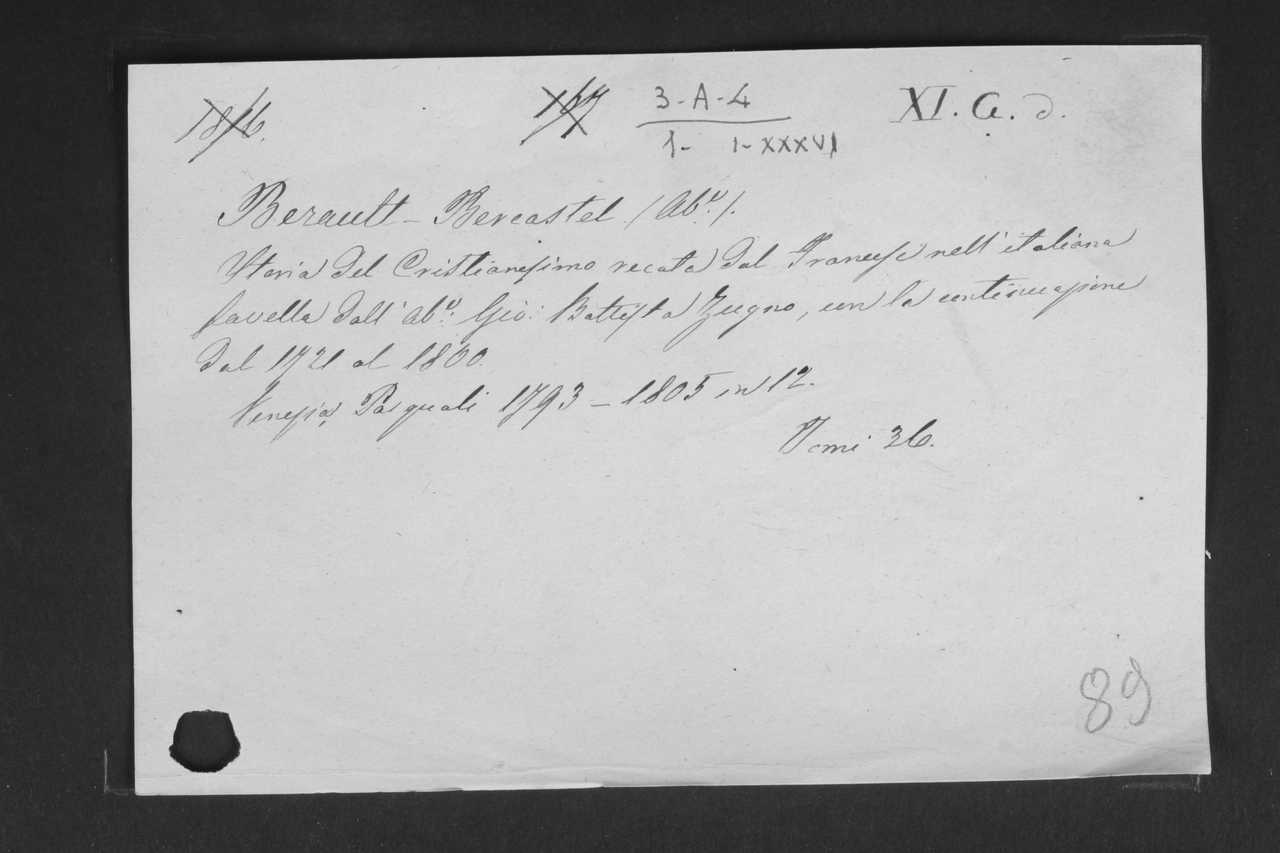 3-A-4 XI. G. d.
1- I-XXXVI
Berault-Bercastel (Ab.e).
Storia del Cristianesimo recata dal Francese nell'italiana
favella dall'ab.e Gio: Battista Zugno, con la continuazione
dal 1721 al 1800.
Venezia, Pasquali 1793-1805 in 12.
Tomi 36.
89